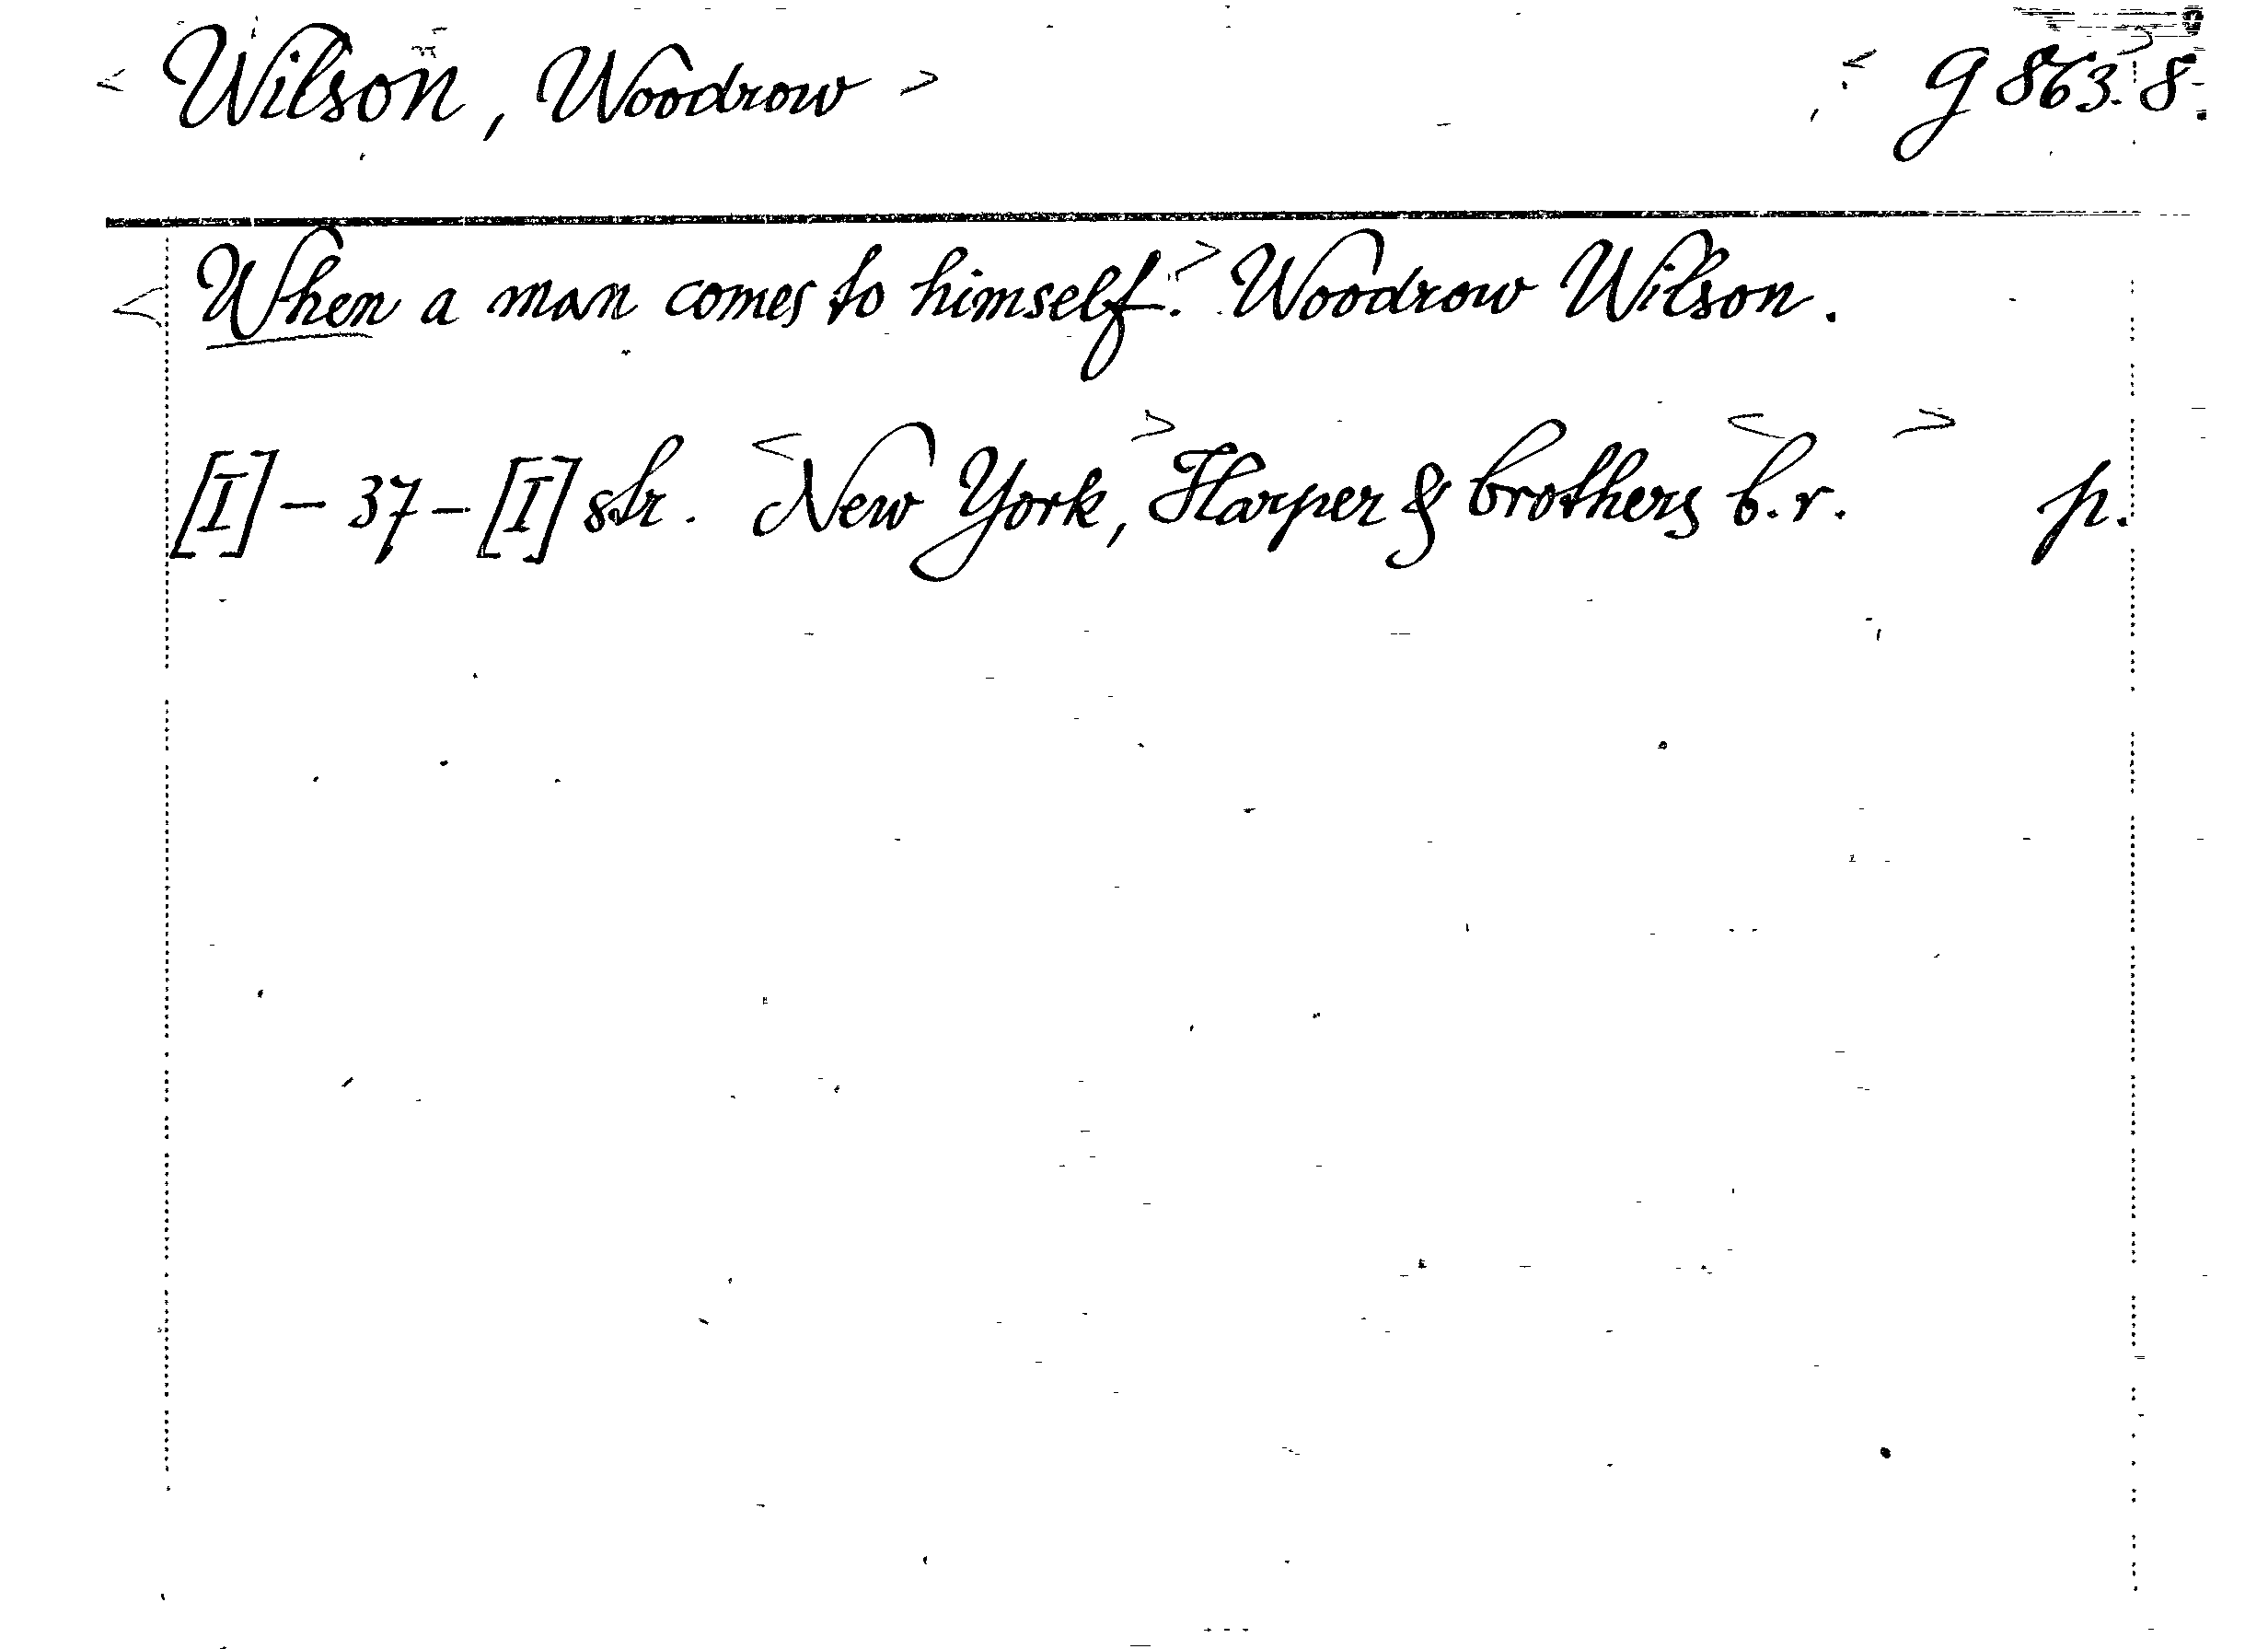 < Wilson, Woodrow > < g 863.8.
< When a man comes to himself. > Woodrow Wilson.
[I] – 37 – [I] str. < New York, > Harper & brothers < b.r. > p.